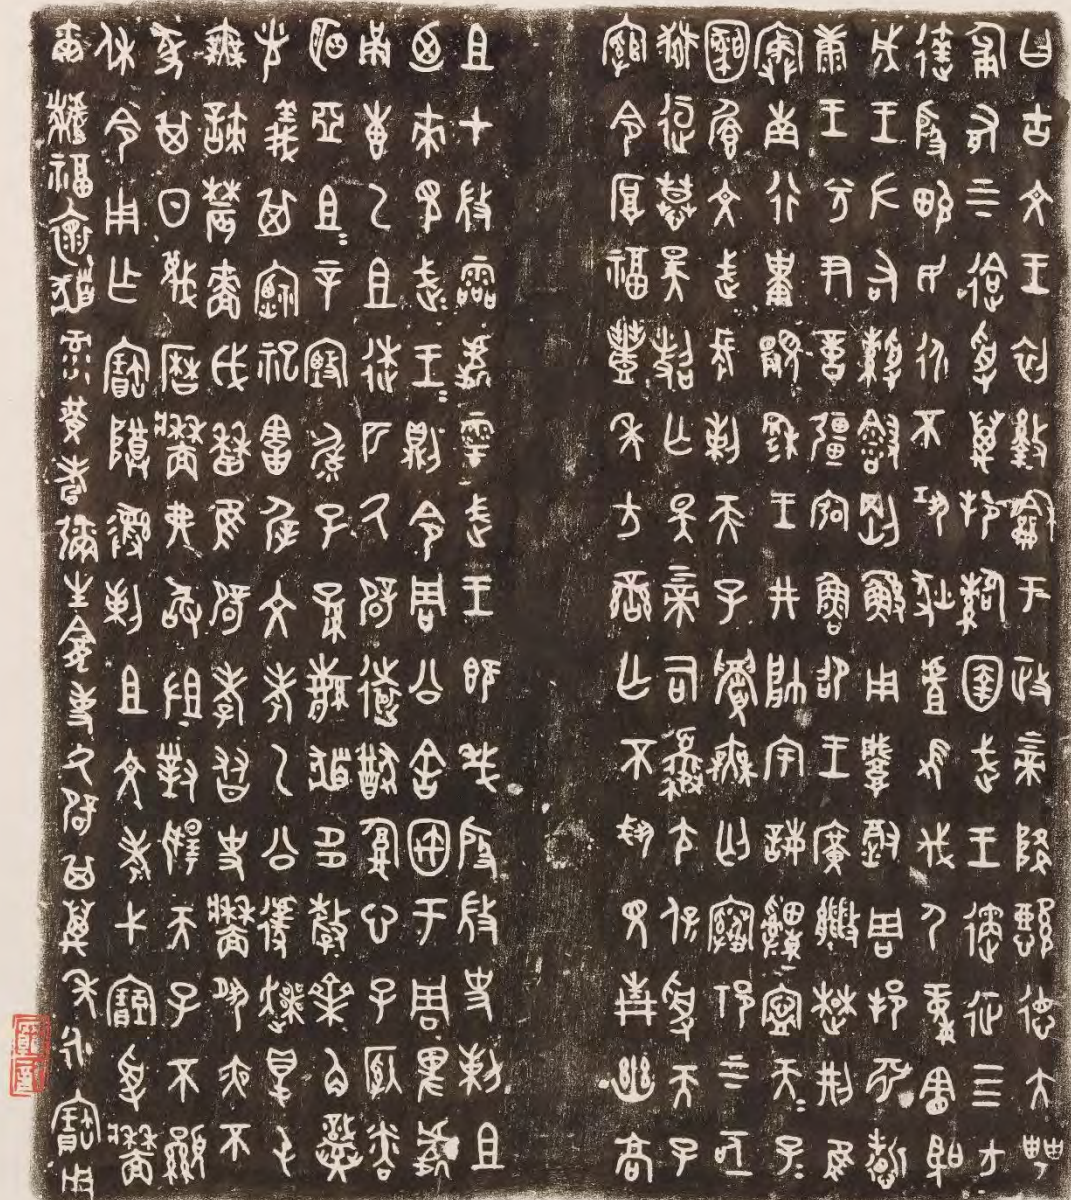 曰古文王初盭龢于政上帝降懿德大甹
匍有上下迨受萬邦䚄圉武王遹征四方
達殷畯民永不巩狄虘髟伐尸童憲聖
成王左右綬會剛鯀用肇徹周邦淵哲
康王兮尹億疆宖魯卲王廣笞楚荊隹
寏南行祗覭穆王井帥宇誨申寧天子=
圉饡文武長剌天子眉無匄褰祁上下亟
獄逗慕昊照亡斁上帝司夔尢保受天子
綰令厚福豐年方蠻亡不䟆見青幽高
且才微霝處雩武王既𢦏殷微史剌且
迺來見武王=則令周公舍宇于周卑處甬
叀乙且逨匹氒辟遠猷腹心子納粦
明亞且=辛毓子孫繁猶多孷齊角熾
光義其禋祀害屖文考乙公遽爽得屯
無諫農穡戉曆隹辟孝友史牆夙夜不
彖其日蔑曆牆弗敢沮對揚天子不顯
休令用乍寶尊彝剌且文考弋寶受牆
爾福懷猶彔黃耇彌生龕事氒辟其萬年永寶用